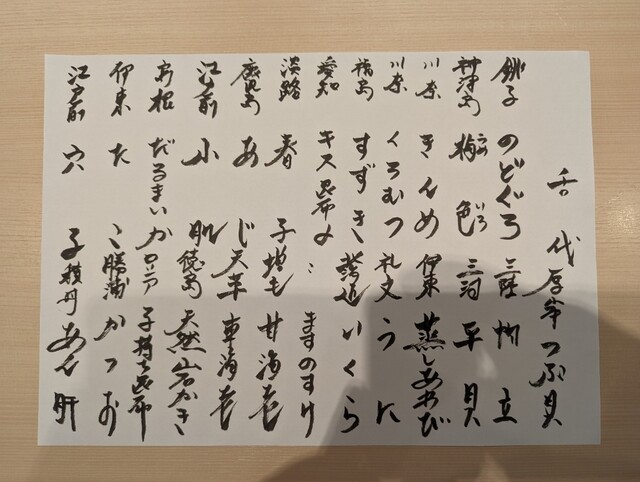 舌代 厚岸 つぶ貝
銚子 のどぐろ 三陸 帆立
神津島 梅色 うめいろ 三河 平貝
川奈 きんめ 伊東 蒸しあわび
川奈 くろむつ 礼文 うに
福島 すずき いくら
愛知 キス昆布〆 ますのすけ
淡路 春子 増毛 甘海老
鹿児島 あじ 天草 車海老
江戸前 小肌 徳島 天然岩かき
島根 だるまいか ロシア 子持ち昆布
伊東 たこ 勝浦 かつお
江戸前 穴子 積丹 あん肝